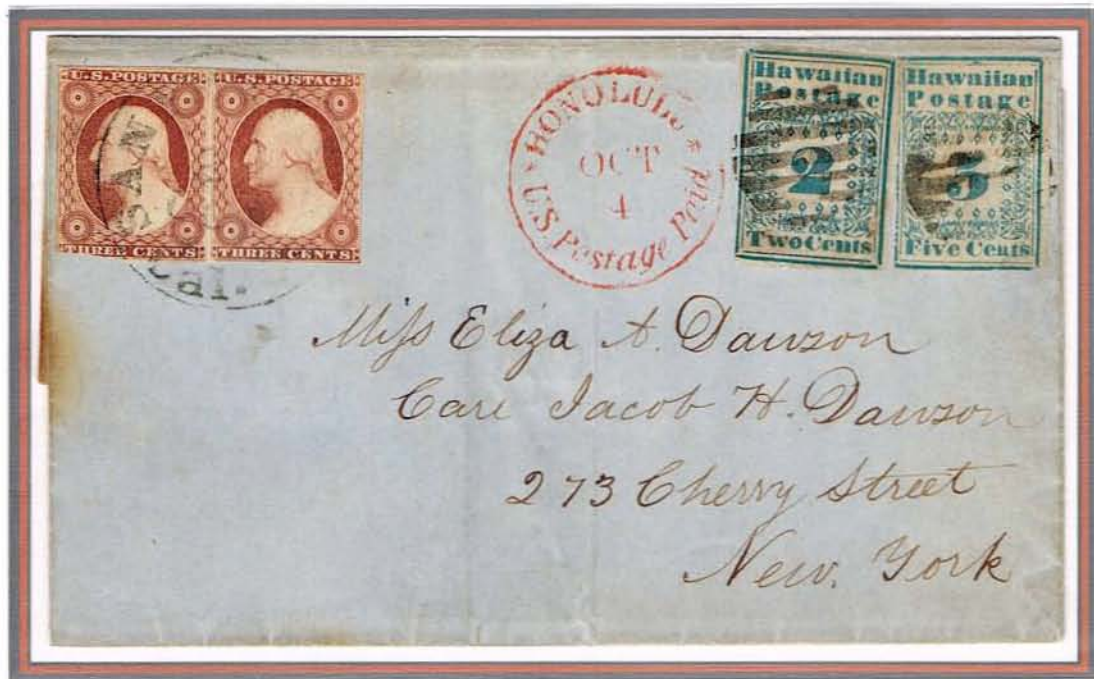 U.S. POSTAGE
THREE CENTS
U.S. POSTAGE
THREE CENTS
SAN
Cal.
HONOLULU *
OCT
4
U.S. Postage Paid
Hawaiian
Postage
2
Two Cents
Hawaiian
Postage
5
Five Cents
Miss Eliza A. Dawson
Care Jacob H. Dawson
273 Cherry Street
New. York